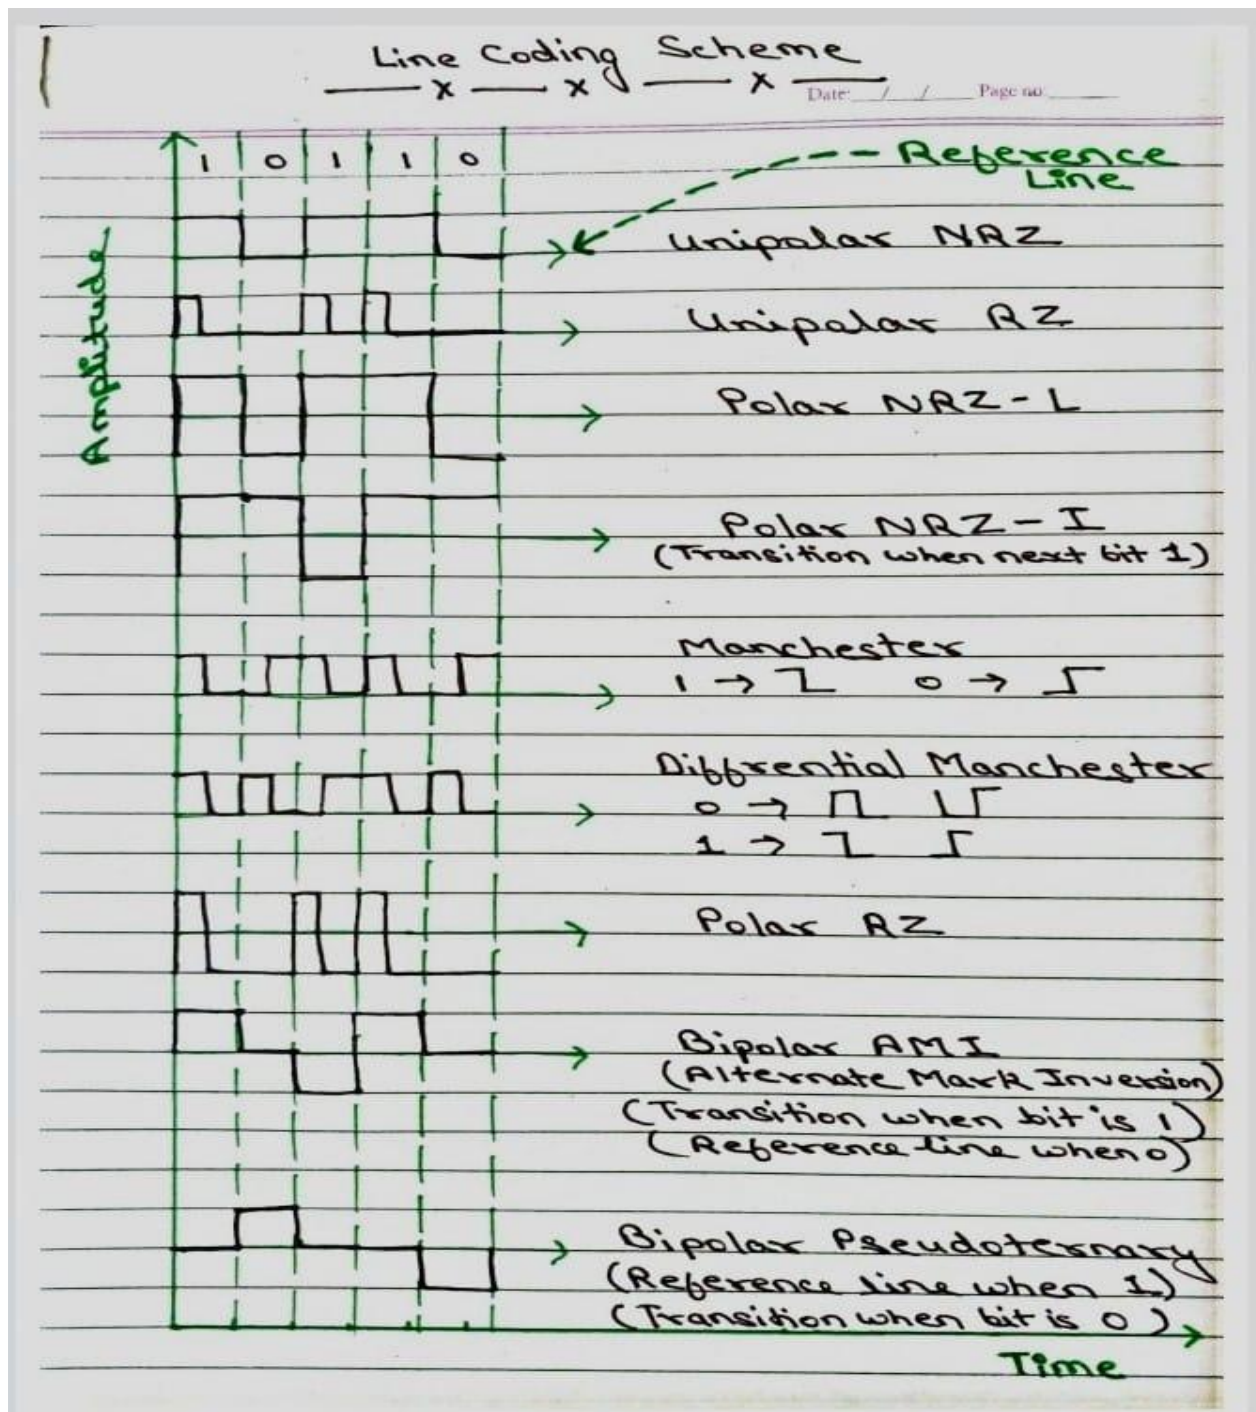 Line Coding Scheme
Date / / Page no
1 0 1 1 0
Reference
Line
Unipolar NRZ
Unipolar RZ
Amplitude
Polar NRZ-L
Polar NRZ-I
(Transition when next bit 1)
Manchester
1 → 0 →
Diffrential Manchester
0 →
1 →
Polar RZ
Bipolar AMI
(Alternate Mark Inversion)
(Transition when bit is 1)
(Reference line when 0)
Bipolar Pseudoternary
(Reference line when 1)
(Transition when bit is 0)
Time